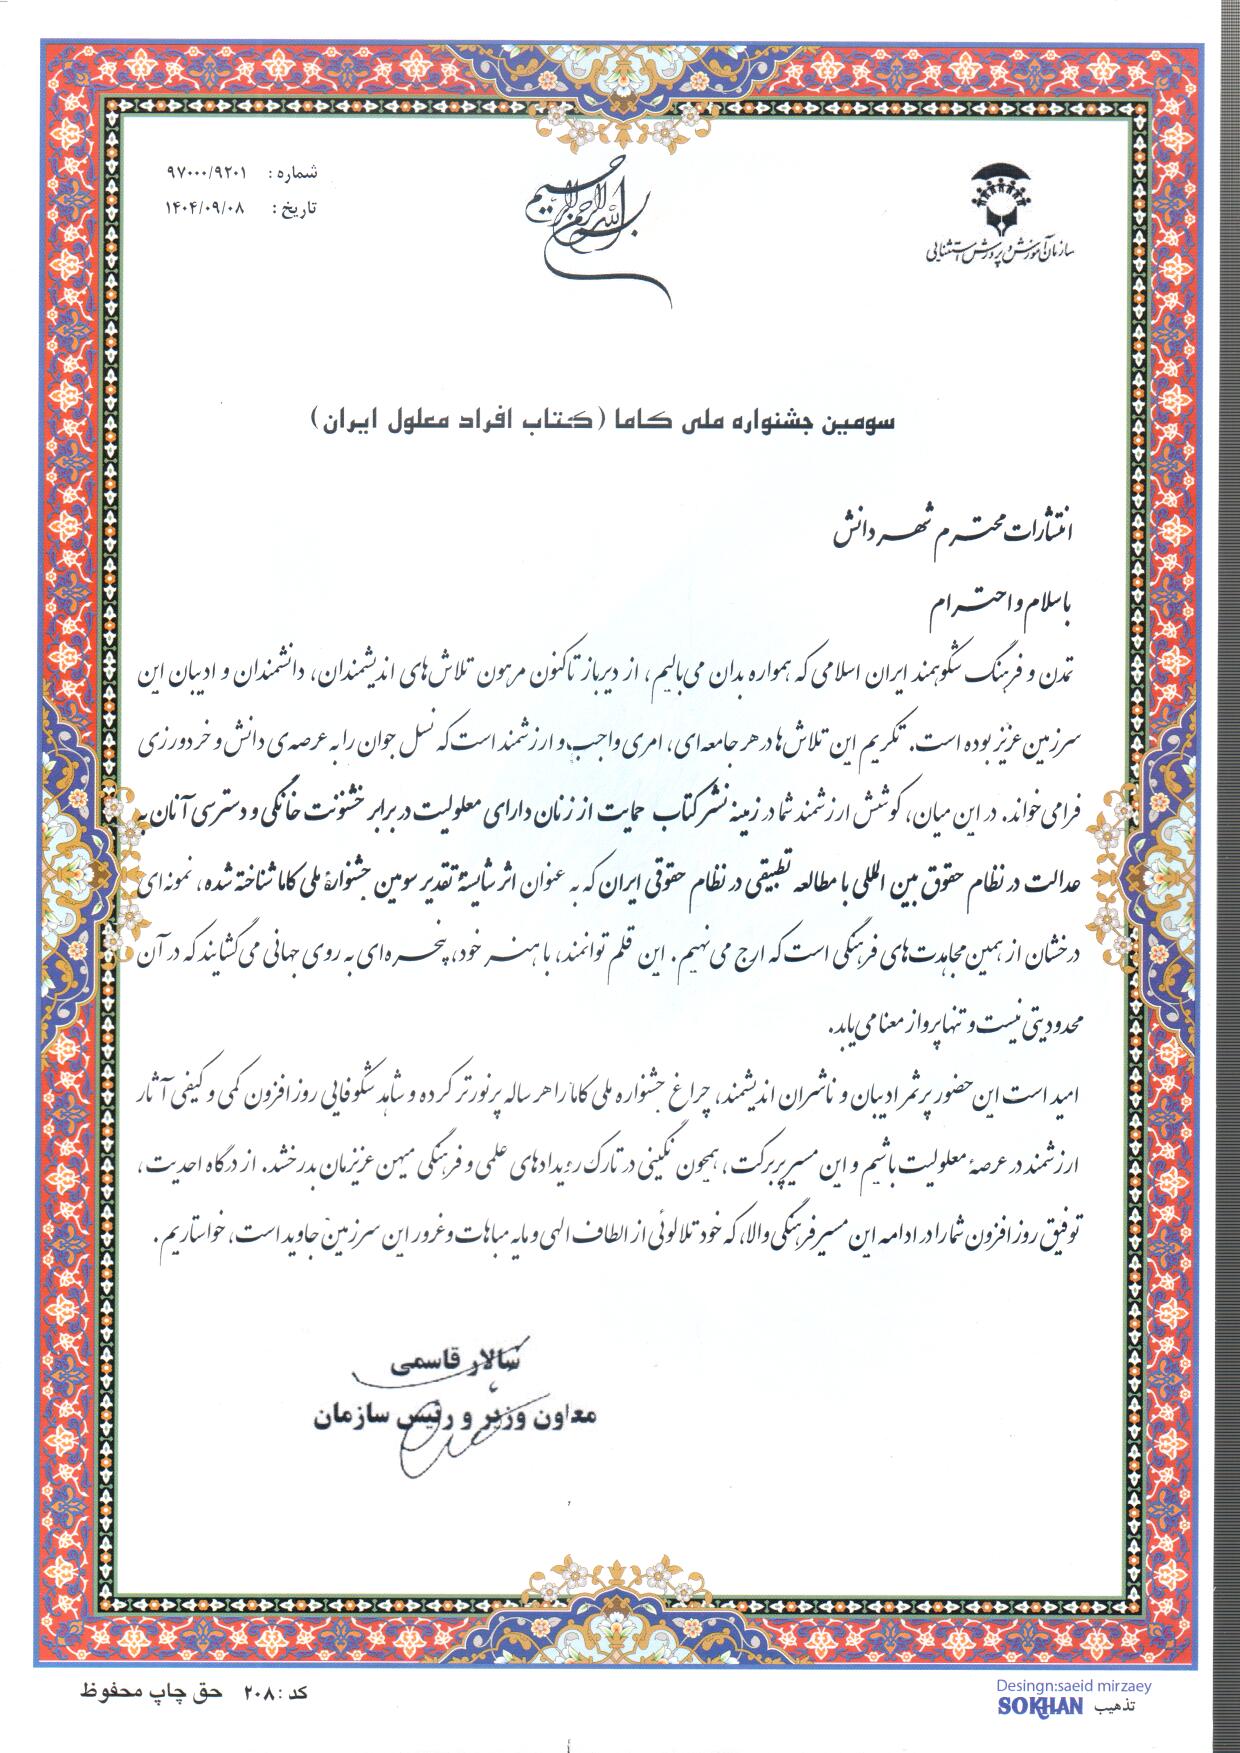 شماره : ۹۷۰۰۰/۹۲۰۱
تاریخ : ۱۴۰۴/۰۹/۰۸
بسم الله الرحمن الرحیم
سازمان آموزش و پرورش استثنایی
سومین جشنواره ملی کاما (کتاب افراد معلول ایران)
انتشارات محترم شهر دانش
با سلام و احترام
تمدن و فرهنگ شکوهمند ایران اسلامی که همواره بدان می‌بالیم، از دیرباز تاکنون مرهون تلاش‌های اندیشمندان، دانشمندان و ادیبان این
سرزمین عزیز بوده است. تکریم این تلاش‌ها در هر جامعه‌ای، امری واجب و ارزشمند است که نسل جوان را به عرصه‌ی دانش و خردورزی
فرامی‌خواند. در این میان، کوشش ارزشمند شما در زمینه نشر کتاب حمایت از زنان دارای معلولیت در برابر خشونت خانگی و دسترسی آنان به
عدالت در نظام حقوق بین المللی با مطالعه تطبیقی در نظام حقوقی ایران که به عنوان اثر شایستهٔ تقدیر سومین جشنوارهٔ ملی کاما شناخته شده، نمونه‌ای
درخشان از همین مجاهدت‌های فرهنگی است که ارج می‌نهیم. این قلم توانمند، با هنر خود، پنجره‌ای به روی جهانی می‌گشایند که در آن
محدودیتی نیست و تنها پرواز معنا می‌یابد.
امید است این حضور پرثمر ادیبان و ناشران اندیشمند، چراغ جشنواره ملی کاما را هر ساله پرنورتر کرده و شاهد شکوفایی روزافزون کمی و کیفی آثار
ارزشمند در عرصهٔ معلولیت باشیم و این مسیر پربرکت، همچون نگینی در تارک رویدادهای علمی و فرهنگی میهن عزیزمان بدرخشد. از درگاه احدیت،
توفیق روزافزون شما را در ادامه این مسیر فرهنگی والا، که خود تلالوئی از الطاف الهی و مایه مباهات و غرور این سرزمین جاوید است، خواستاریم.
سالار قاسمی
معاون وزیر و رئیس سازمان
کد : ۲۰۸ حق چاپ محفوظ
Desingn:saeid mirzaey
SOKHAN تذهیب